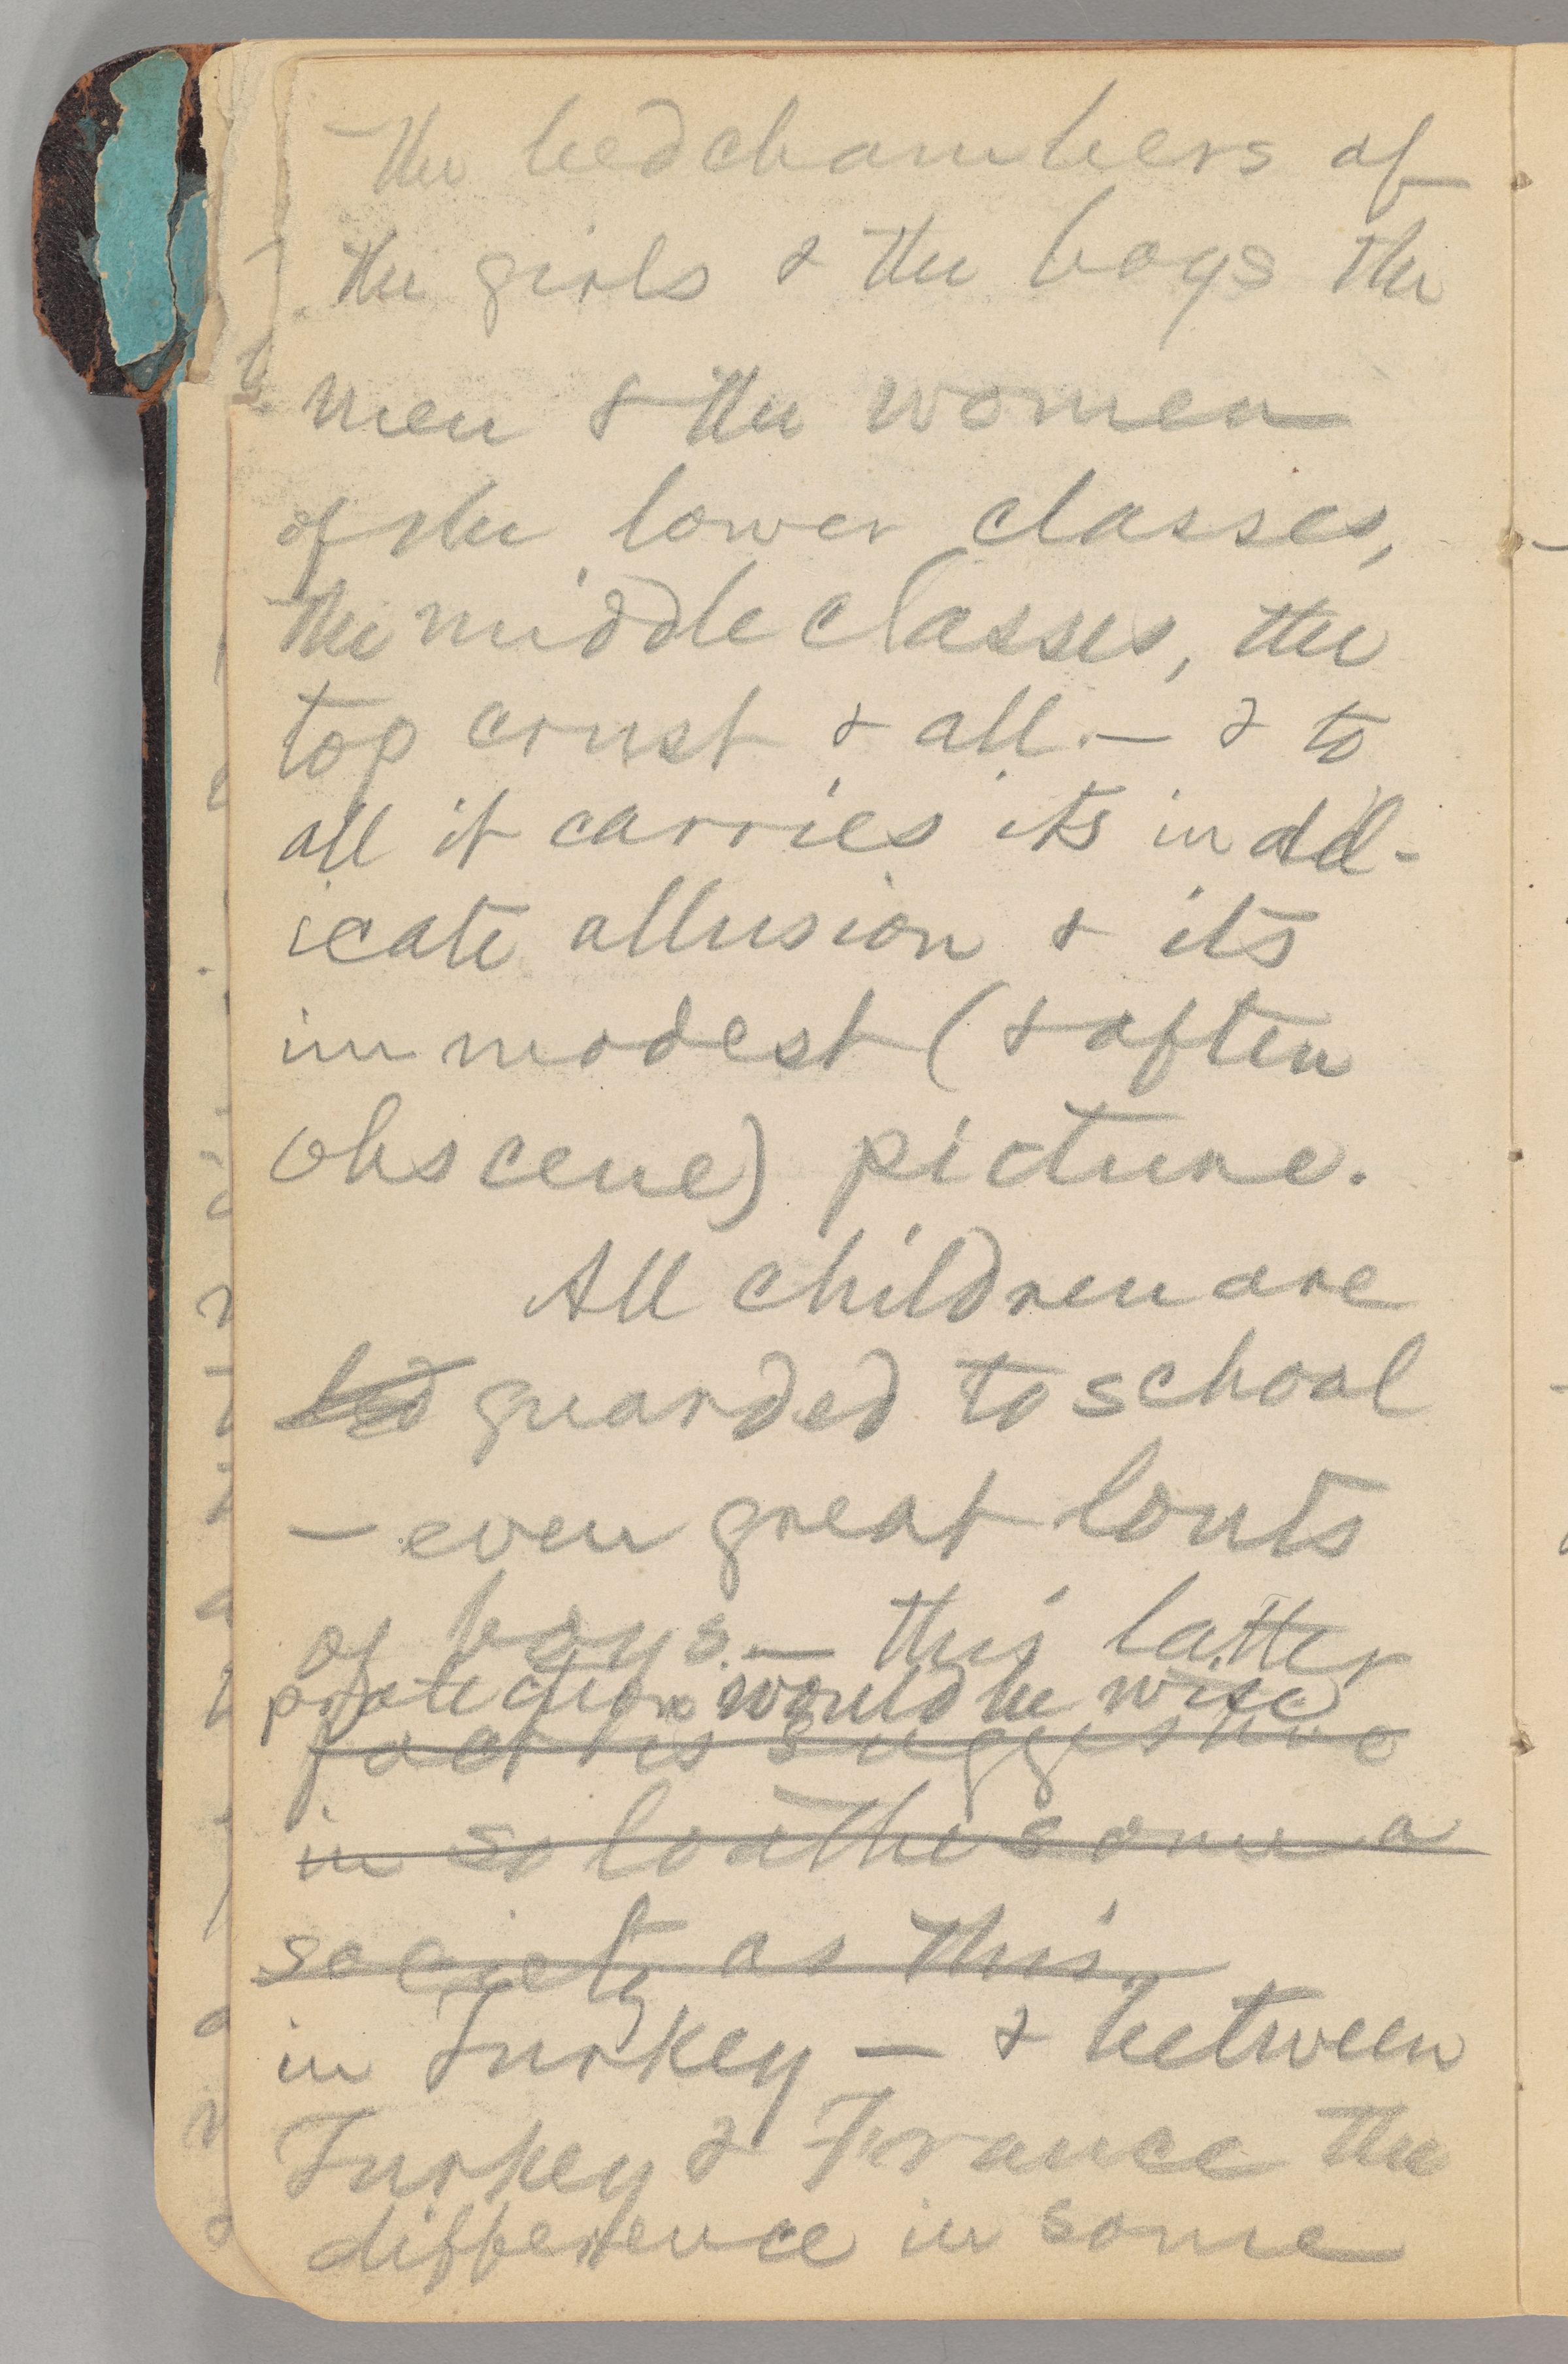 the bedchambers of
the girls & the boys the
men & the women
of the lower classes,
the middle classes, the
top crust & all. — & to
all it carries its indel-
icate allusion & its
immodest (& often
obscene) picture.
All children are
led guarded to school
— even great louts
of boys. — this latter
protection would be wise
fact is suggestive
in so loathesome a
society as this.
in Turkey — & between
Turkey & France the
difference in some